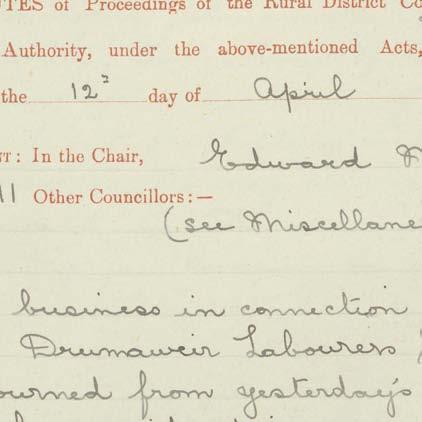 UTES of Proceedings of the Rural District Co
Authority, under the above-mentioned Acts,
the 12 day of April
NT: In the Chair, Edward M
11 Other Councillors:—
(see Miscellane
business in connection
Drumaweir Labourers
ourned from yesterday's